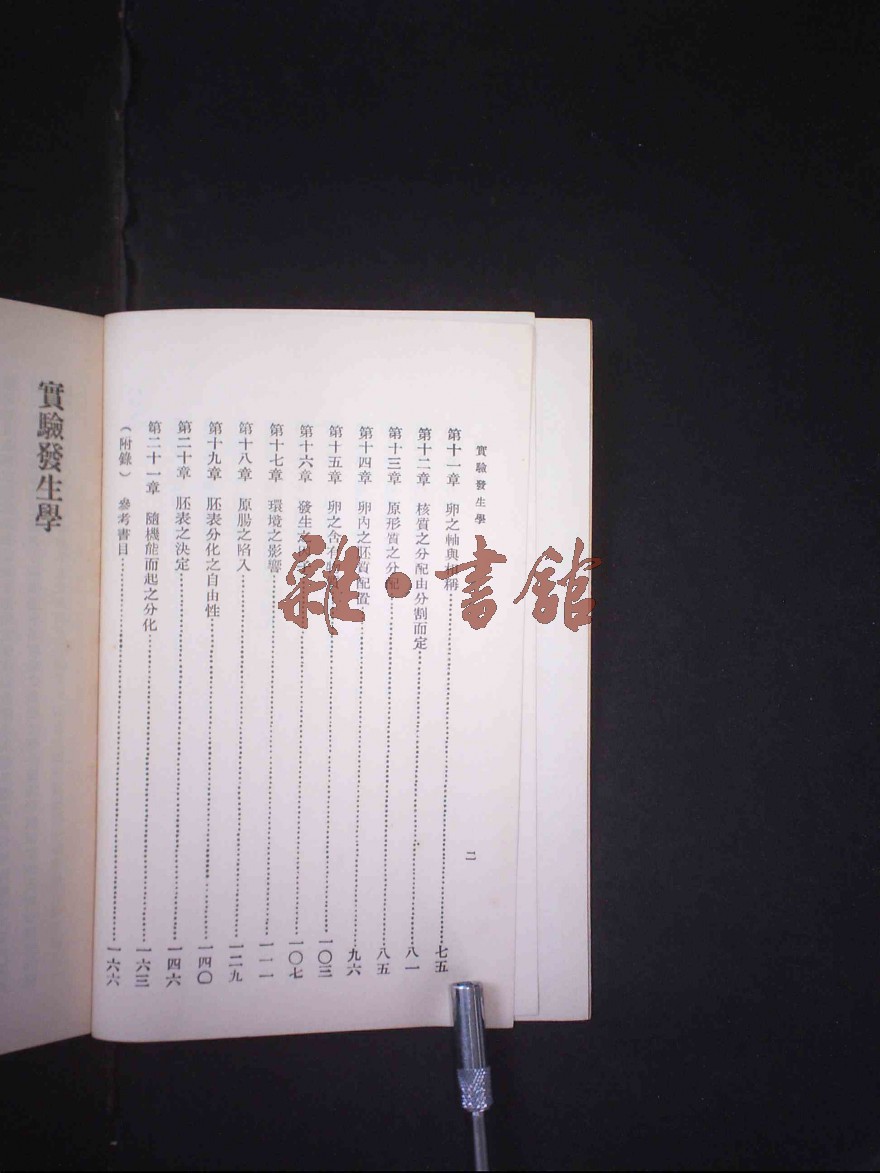 實驗發生學
二
第十一章 卵之軸與相稱 七五
第十二章 核質之分配由分割而定 八一
第十三章 原形質之分配 八五
第十四章 卵內之胚質配置 九六
第十五章 卵之含有物 一〇三
第十六章 發生之 一〇七
第十七章 環境之影響 一一一
第十八章 原腸之陷入 一二九
第十九章 胚表分化之自由性 一四〇
第二十章 胚表之決定 一四六
第二十一章 隨機能而起之分化 一六三
(附錄) 參考書目 一六六
實驗發生學
雜·書館